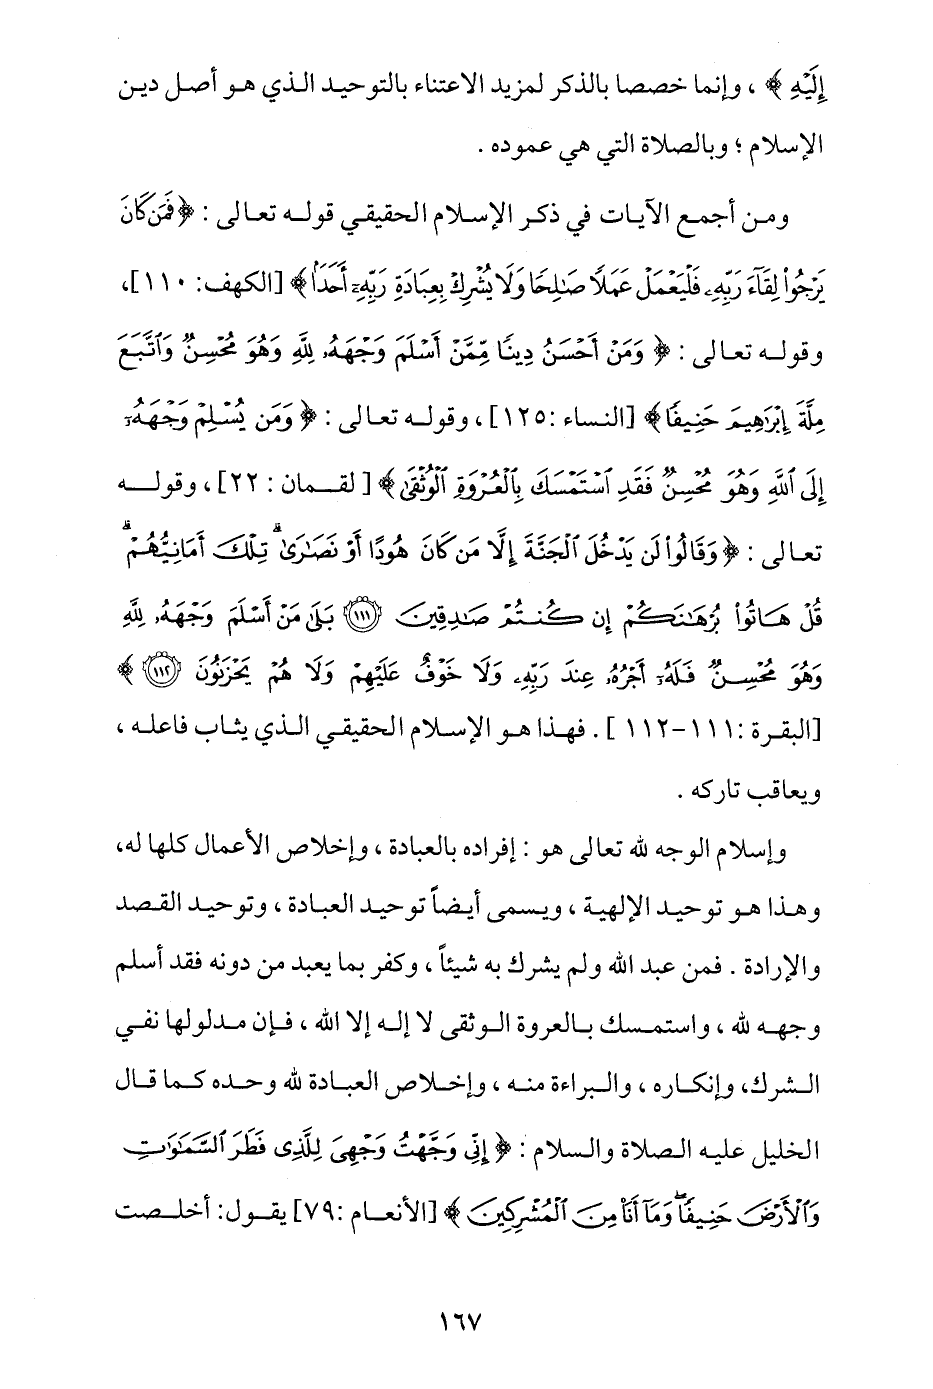 إِلَيْهِ ﴾ ، وإنما خصصا بالذكر لمزيد الاعتناء بالتوحيد الذي هو أصل دين
الإسلام ؛ وبالصلاة التي هي عموده .
ومن أجمع الآيات في ذكر الإسلام الحقيقي قوله تعالى : ﴿ فَمَن كَانَ
يَرْجُوا۟ لِقَآءَ رَبِّهِۦ فَلْيَعْمَلْ عَمَلًا صَـٰلِحًا وَلَا يُشْرِكْ بِعِبَادَةِ رَبِّهِۦٓ أَحَدًۢا ﴾ [الكهف: ١١٠]،
وقوله تعالى : ﴿ وَمَنْ أَحْسَنُ دِينًا مِّمَّنْ أَسْلَمَ وَجْهَهُۥ لِلَّهِ وَهُوَ مُحْسِنٌ وَٱتَّبَعَ
مِلَّةَ إِبْرَٰهِيمَ حَنِيفًا ﴾ [النساء :١٢٥] ، وقوله تعالى : ﴿ وَمَن يُسْلِمْ وَجْهَهُۥٓ
إِلَى ٱللَّهِ وَهُوَ مُحْسِنٌ فَقَدِ ٱسْتَمْسَكَ بِٱلْعُرْوَةِ ٱلْوُثْقَىٰ ﴾ [ لقمان : ٢٢] ، وقوله
تعالى : ﴿ وَقَالُوا۟ لَن يَدْخُلَ ٱلْجَنَّةَ إِلَّا مَن كَانَ هُودًا أَوْ نَصَـٰرَىٰ ۗ تِلْكَ أَمَانِيُّهُمْ ۗ
قُلْ هَاتُوا۟ بُرْهَـٰنَكُمْ إِن كُنتُمْ صَـٰدِقِينَ ١١١ بَلَىٰ مَنْ أَسْلَمَ وَجْهَهُۥ لِلَّهِ
وَهُوَ مُحْسِنٌ فَلَهُۥٓ أَجْرُهُۥ عِندَ رَبِّهِۦ وَلَا خَوْفٌ عَلَيْهِمْ وَلَا هُمْ يَحْزَنُونَ ١١٢ ﴾
[البقرة :١١١-١١٢ ] . فهذا هو الإسلام الحقيقي الذي يثاب فاعله ،
ويعاقب تاركه .
وإسلام الوجه لله تعالى هو : إفراده بالعبادة ، وإخلاص الأعمال كلها له،
وهذا هو توحيد الإلهية ، ويسمى أيضاً توحيد العبادة ، وتوحيد القصد
والإرادة . فمن عبد الله ولم يشرك به شيئاً ، وكفر بما يعبد من دونه فقد أسلم
وجهه لله ، واستمسك بالعروة الوثقى لا إله إلا الله ، فإن مدلولها نفي
الشرك، وإنكاره ، والبراءة منه ، وإخلاص العبادة لله وحده كما قال
الخليل عليه الصلاة والسلام : ﴿ إِنِّى وَجَّهْتُ وَجْهِىَ لِلَّذِى فَطَرَ ٱلسَّمَـٰوَٰتِ
وَٱلْأَرْضَ حَنِيفًا ۖ وَمَآ أَنَا۠ مِنَ ٱلْمُشْرِكِينَ ﴾ [الأنعام :٧٩] يقول: أخلصت
١٦٧